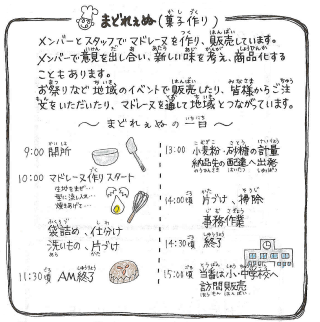 まどれぇぬ(菓子作り)
メンバーとスタッフでマドレーヌを作り、販売しています。
メンバーで意見を出し合い、新しい味を考え、商品化する
こともあります。
お祭りなど地域のイベントで販売したり、皆様からご注
文をいただいたり、マドレーヌを通して地域とつながっています。
〜 まどれぇぬの一日 〜
9:00 開所
10:00 マドレーヌ作りスタート
生地をまぜ…
型に流し入れ…
焼きあげて…
袋詰め、仕分け
洗いもの、片づけ
11:30頃 AM終了
13:00 小麦粉・砂糖の計量
納品先の配達へ出発
14:00頃 片づけ、掃除
事務作業
14:30頃 終了
15:00頃 当番は小・中学校へ
訪問販売